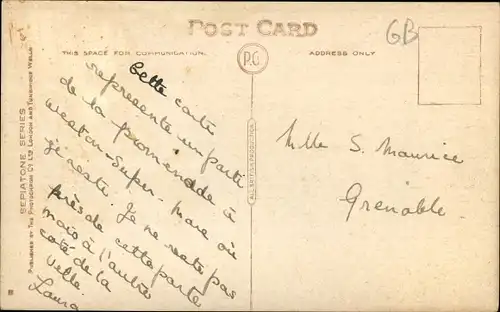 POST CARD
GB
THIS SPACE FOR COMMUNICATION.
ADDRESS ONLY
P.G
SEPIATONE SERIES
PUBLISHED BY THE PHOTOCHROM CO LTD LONDON AND TUNBRIDGE WELLS
ALL BRITISH PRODUCTION
Cette carte
represente un parti
de la promenade à
Weston-Super-Mare où
je reste. Je ne reste pas
près de cette parte
mais à l'autre
coté de la
ville.
Laura
Mlle S. Maurice
Grenoble.